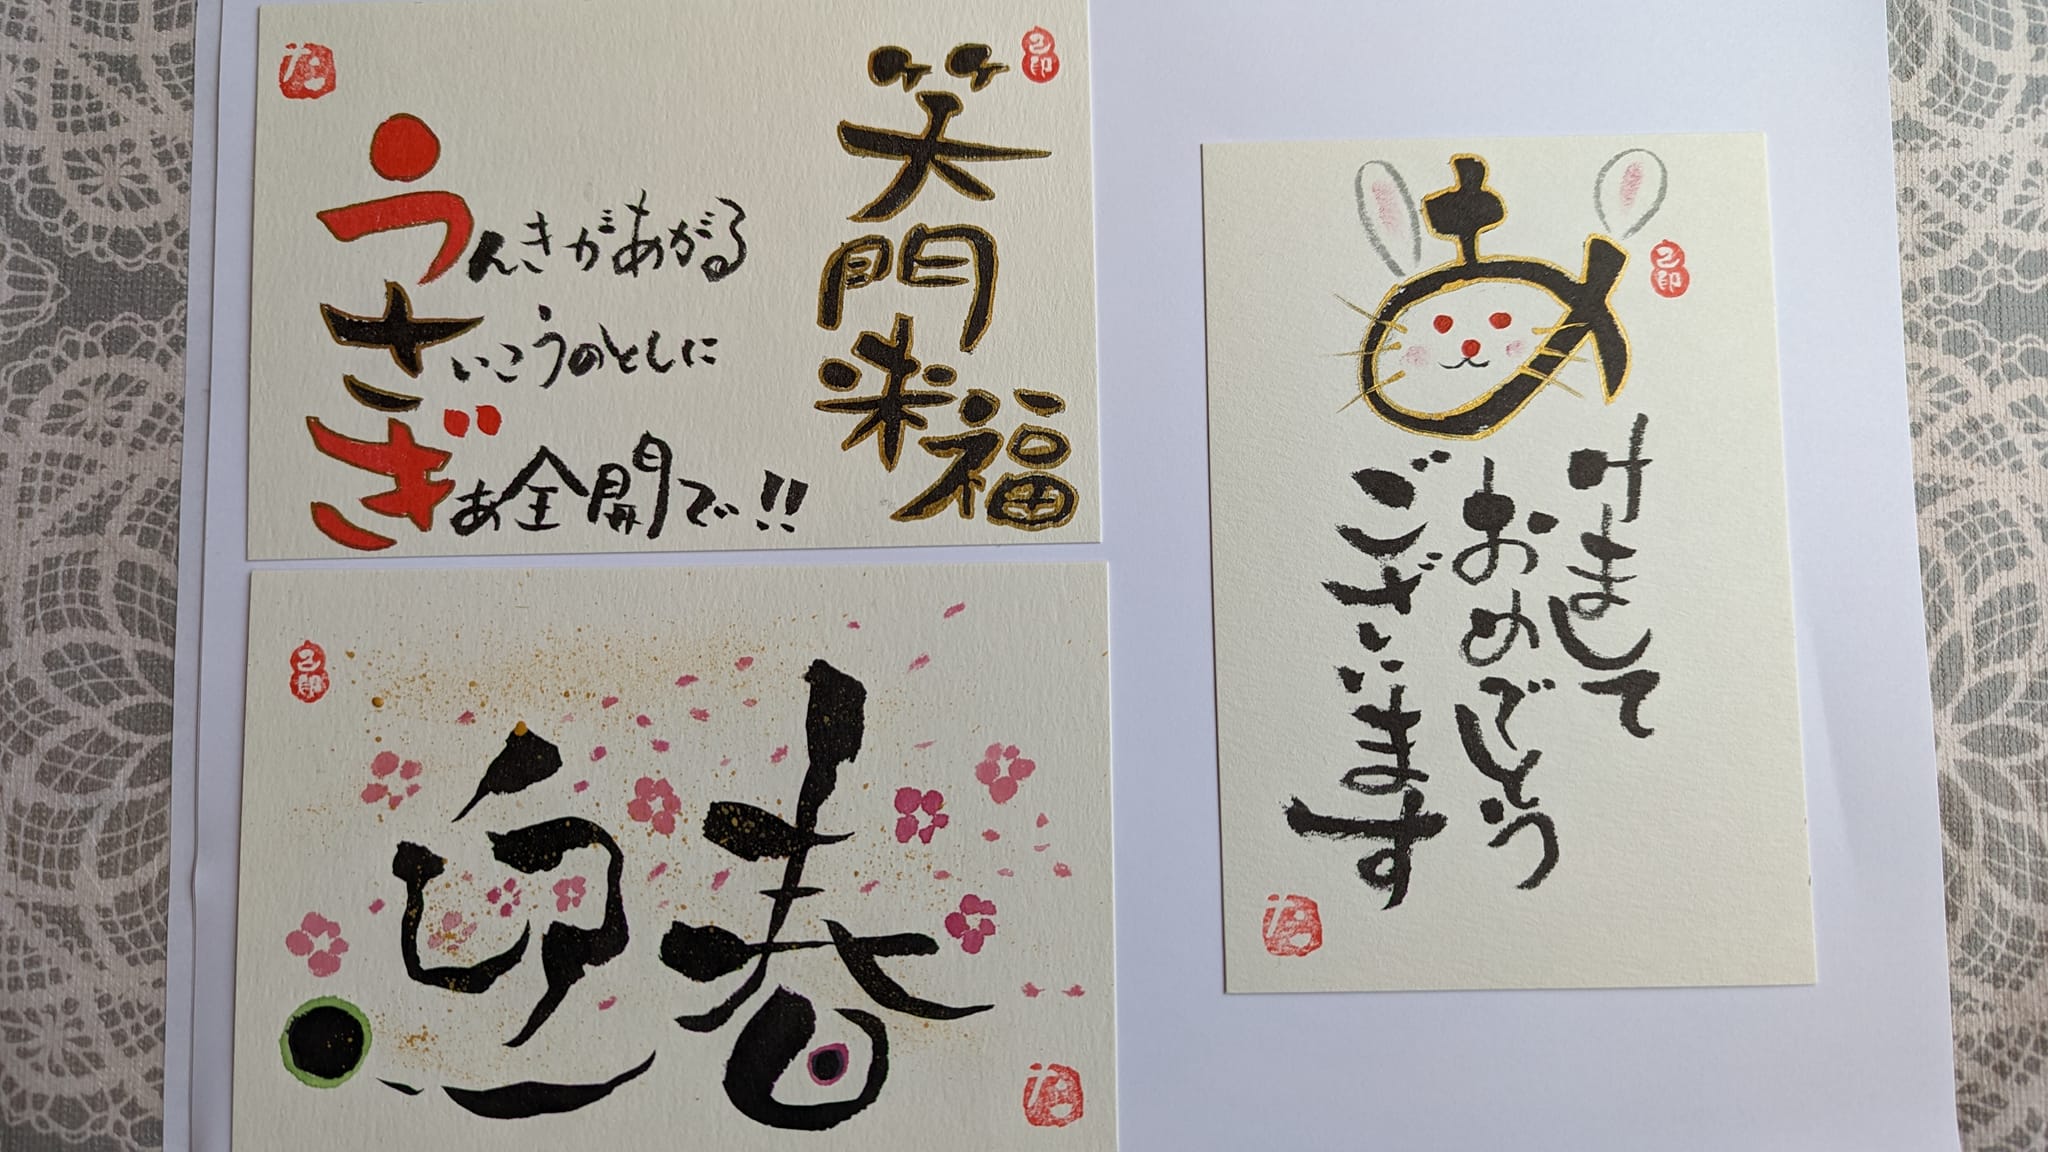 笑門来福
うんきがあがる
さいこうのとしに
ぎあ全開で!!
迎春
あ
けまして
おめでとう
ございます
己印
己印
己印